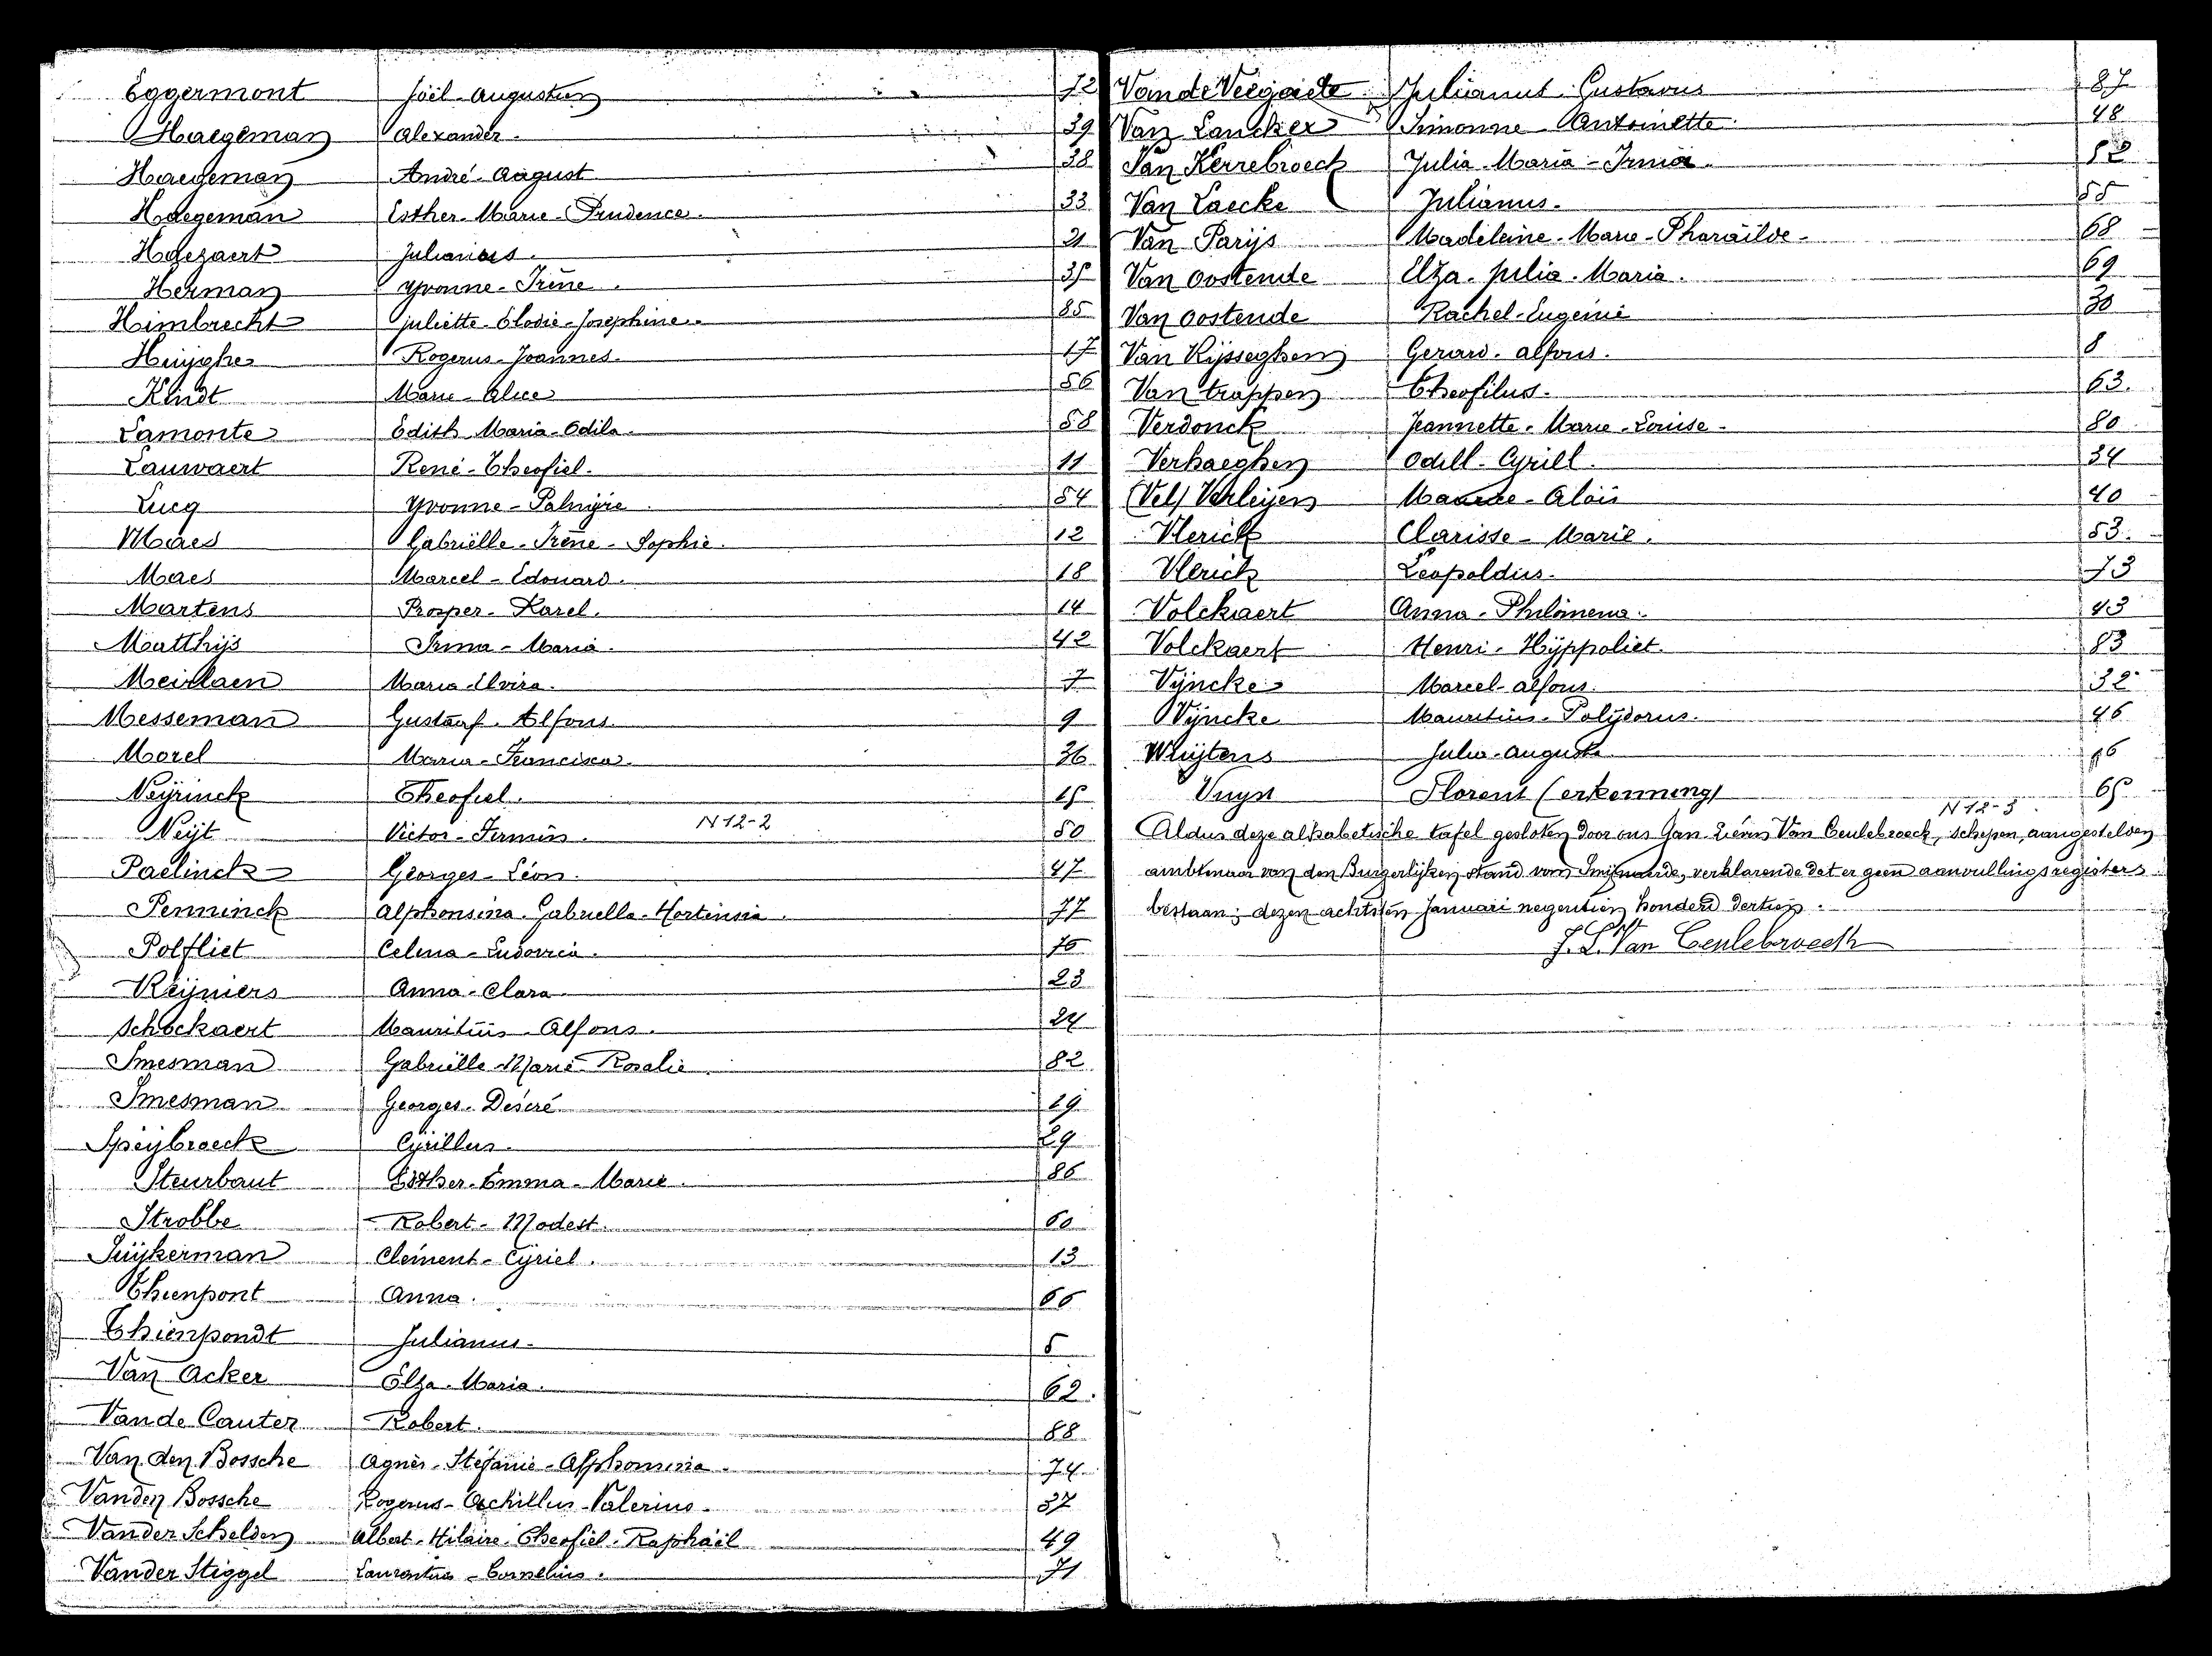 Eggermont Joël-Augusten 72
Haegeman Alexander. 39
Haegeman André-August 38
Haegeman Esther-Marie-Prudence. 33
Haezaert Julianus. 21
Herman Yvonne-Irène. 35
Himbrecht Juliette-Elodie-Joséphine. 85
Huijghe Rogerus-Joannes. 17
Kindt Marie-Alice 56
Lamonte Edith Maria-Odila. 58
Lauwaert René-Theofiel. 11
Lucq Yvonne-Palmÿre. 54
Maes Gabriëlle-Irène-Sophie. 12
Maes Marcel-Edouard. 18
Martens Prosper-Karel. 14
Matthijs Irma-Maria. 42
Meirlaen Maria-Elvira. 7
Messeman Gustaaf-Alfons. 9
Morel Maria-Francisca. 36
Neÿrinck Theofiel. 15
Neijt Victor-Firmin. N12-2 50
Paelinck Georges-Léon. 47
Penninck Alphonsina-Gabriella-Hortensia. 77
Polfliet Celina-Ludovica. 76
Reÿniers Anna-Clara 23
Schockaert Mauritius-Alfons. 24
Smesman Gabriëlle Marie-Rosalie. 82
Smesman Georges-Desiré 19
Speijbroeck Cÿrillus. 29
Steurbaut Esther-Emma-Marie. 86
Strobbe Robert-Modest. 60
Suijkerman Clément-Cÿriel. 13
Thienpont Anna. 66
Thienpondt Julianus. 5
Van Acker Elza-Maria. 62.
Van de Cauter Robert. 88
Van den Bossche Agnès-Stéfanie-Alphonsina. 74
Vanden Bossche Rogerus-Achillus-Valerius. 37
Vander Schelden Albert-Hilaire-Theofiel-Raphaël 49
Vander Stiggel Laurentius-Cornelius. 71
Van de Veegaete Julianus Gustavus 87
Van Lancker Simonne Antoinette. 48
Van Kerrebroeck Julia-Maria-Irma. 52
Van Laecke Julianus. 55
Van Parijs Madeleine-Marie-Pharaïlde- 68
Van Oostende Elza-Julia-Maria. 69
Van Oostende Rachel-Eugenie 30
Van Rijsseghem Gerard-Alfons. 8
Van trappen Theofilus. 63.
Verdonck Jeannette-Marie-Louise- 80
Verhaeghen Odill-Cyrill. 34
Verleijen Maurice-Aloïs 40
Vlerick Clarisse-Marie. 53.
Vlerick Leopoldus. 73
Volckaert Anna-Philomena. 43
Volckaert Henri-Hÿppoliet. 83
Vÿncke Marcel-Alfons. 32
Vÿncke Mauritius-Polÿdorus. 46
Wluijtens Julia-Augusta 16
Vuyst Florent (erkenning) 65
N12-3
Aldus deze alphabetische tafel gesloten door ons Jan-Liévin Van Ceulebroeck, schepen, aangestelden
ambtenaar van den Burgerlijken stand van Smijnaarde, verklarende dat er geen aanvullingsregisters
bestaan; dezen achttien Januari negentien honderd dertien.
J.L. Van Ceulebroeck